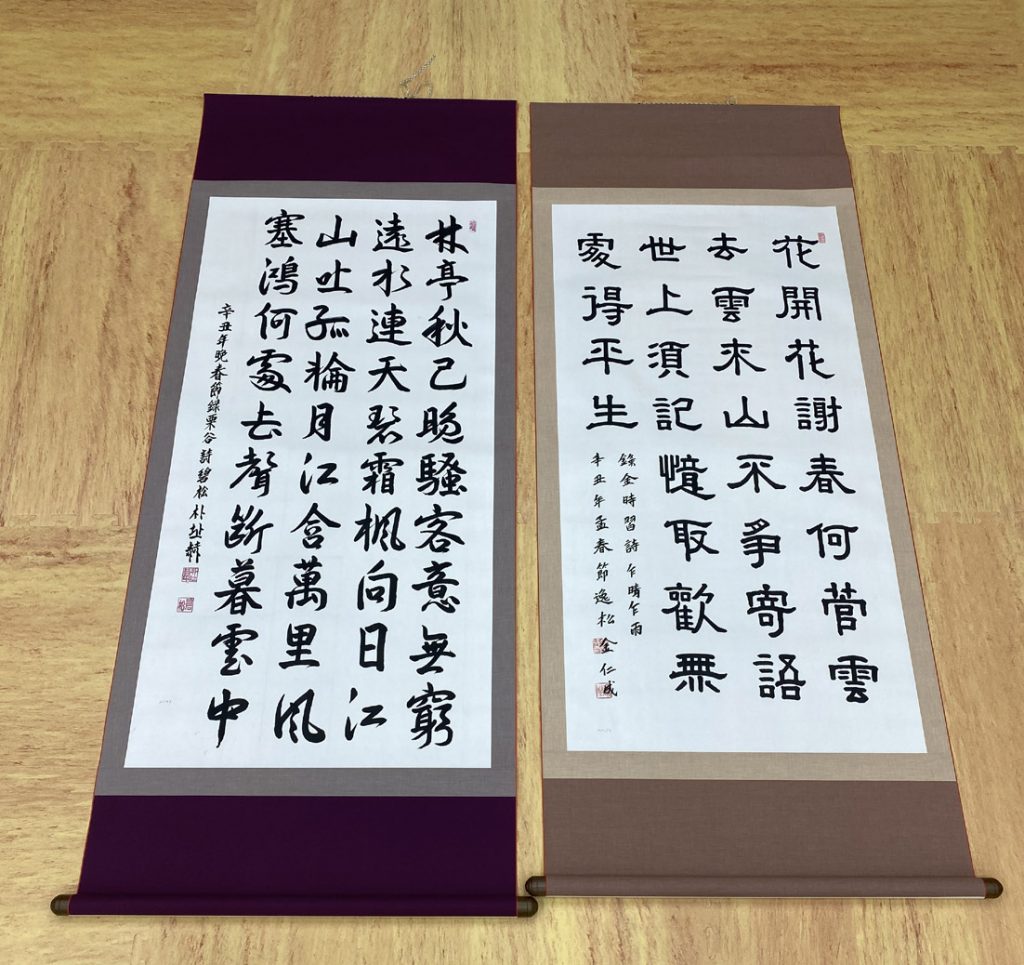 花開花謝春何管雲
去雲來山不爭寄語
世上須記憶取歡無
處得平生
錄金時習詩乍晴乍雨
辛丑年孟春節逸松金仁成
林亭秋已晚騷客意無窮
遠水連天碧霜楓向日紅
山吐孤輪月江含萬里風
塞鴻何處去聲斷暮雲中
辛丑年晚春節錄栗谷詩碧松朴址